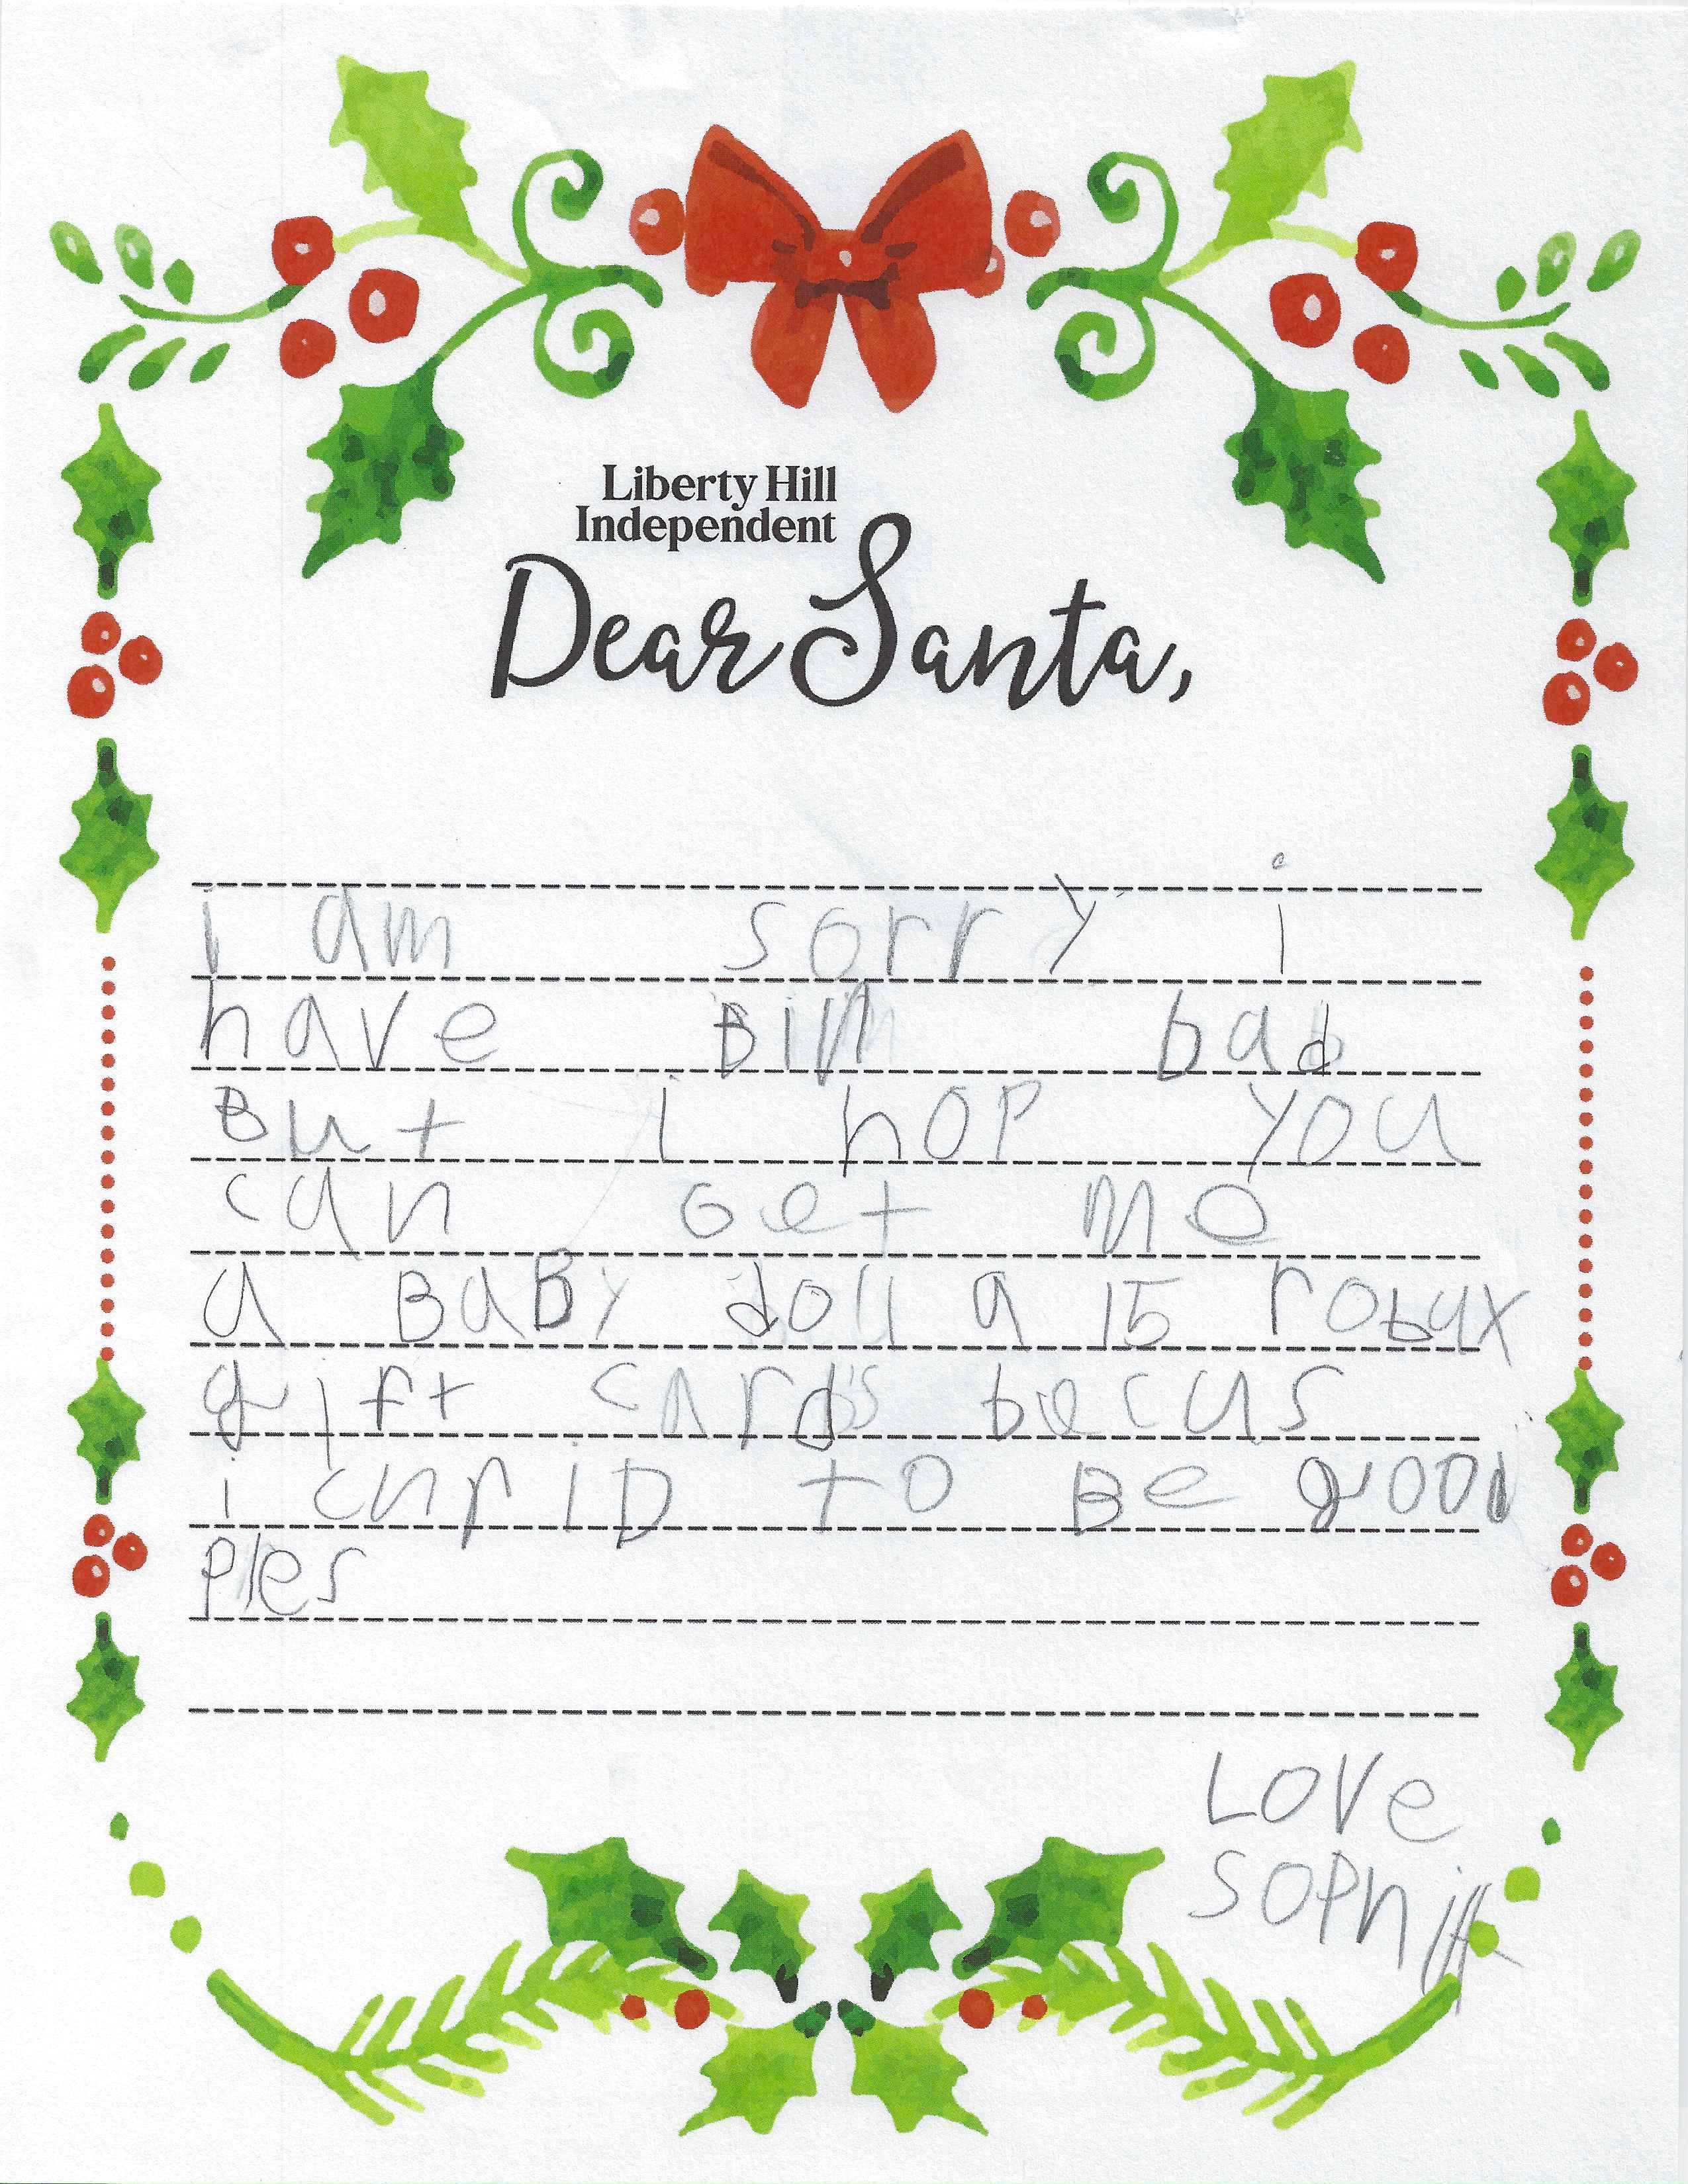 Liberty Hill
Independent
Dear Santa,
i am sorry i
have Bin bad
But i hop you
can Get me
a BaBy doll a 15 robux
gift cards becus
i chriD to Be good
ples
Love
Sophia